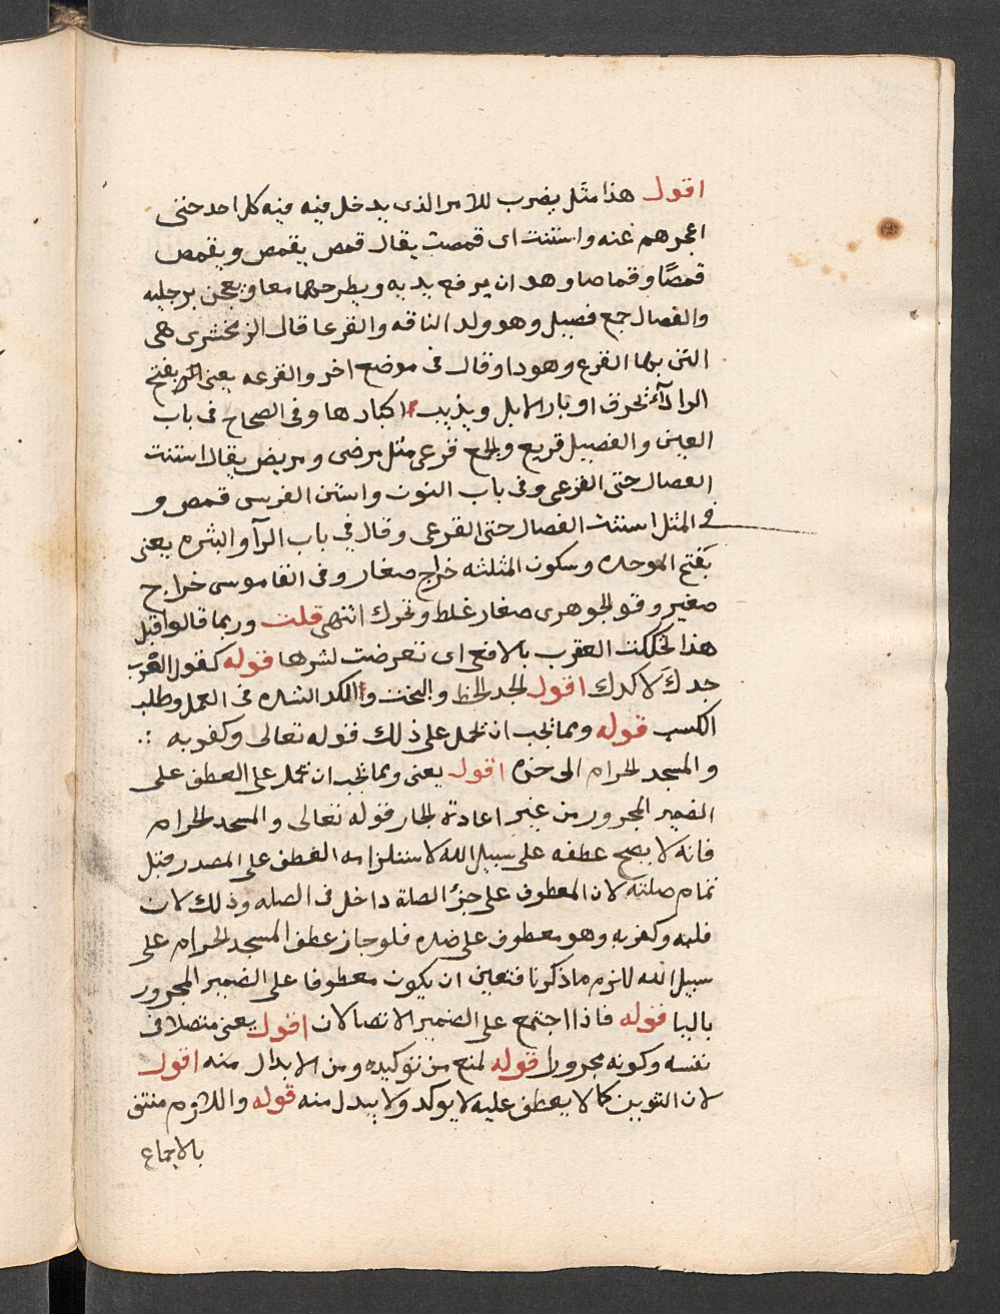 اقول هذا مثل يضرب للامر الذى يدخل فيه فيه كل احد حتى
اعجزهم عنه واستنت اى قمصت يقال قمص يقمص ويقمص
قمصًا وقماصا وهو ان يرفع يديه ويطرحهما معا ويعجن برجليه
والفصال جمع فصيل وهو ولد الناقه والقرعا قال الزمخشرى هى
التى بها القرع وهو دا وقال فى موضع اخر والقرعه يعنى بفتح
الرا دآء يحرق اوبار الابل ويذيب اكبادها وفى الصحاح فى باب
العين والفصيل قريع والجمع قرعى مثل مرضى ومريض يقال استنت
الفصال حتى القرعى وفى باب النون واستن الفرس قمص و
فى المثل استنت الفصال حتى القرعى وقال فى باب الرآ والبثره يعنى
بفتح الموحده وسكون المثلثه خراج صغار وفى القاموس خراج
صغير وقول الجوهرى صغار غلط وتحرك انتهى قلت وربما قالوا قبل
هذا تحككت العقرب بالافعى اى تعرضت لشرها قوله كقول العرب
جدك لا كدك اقول الجد الحظ والبخت والكد الشده فى العمل وطلب
الكسب قوله ومما يجب ان يحمل على ذلك قوله تعالى وكفر به ؞
والمسجد الحرام الى اخره اقول يعنى ومما يجب ان يحمل على العطف على
الضمير المجرور من غير اعادة الجار قوله تعالى والمسجد الحرام
فانه لا يصح عطفه على سبيل الله لاستلزامه العطف على المصدر قبل
تمام صلته لان المعطوف على جزء الصلة داخل فى الصله وذلك لان
قبله وكفر به وهو معطوف على صد فلو جاز عطف المسجد الحرام على
سبيل الله للزم ما ذكرنا فتعين ان يكون معطوفا على الضمير المجرور
بالبا قوله فاذا اجتمع على الضمير الاتصالان اقول يعنى متصلا فى
نفسه وكونه مجرورا قوله لمنع من توكيده ومن الابدال منه اقول
لان التنوين كما لا يعطف عليه لا يوكد ولا يبدل منه قوله واللازم منتف
بالاجماع